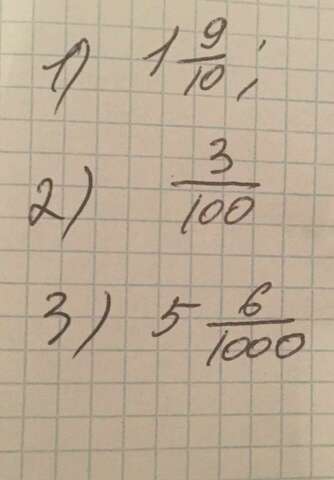 1) 1 9/10;
2) 3/100
3) 5 6/1000